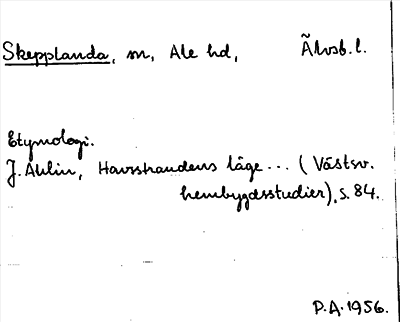 Skepplanda, sn, Ale hd, Älvsb. l.
Etymologi.
J. Ahlin, Havsstrandens läge... (Västsv.
hembygdsstudier), s. 84.
P.A. 1956.